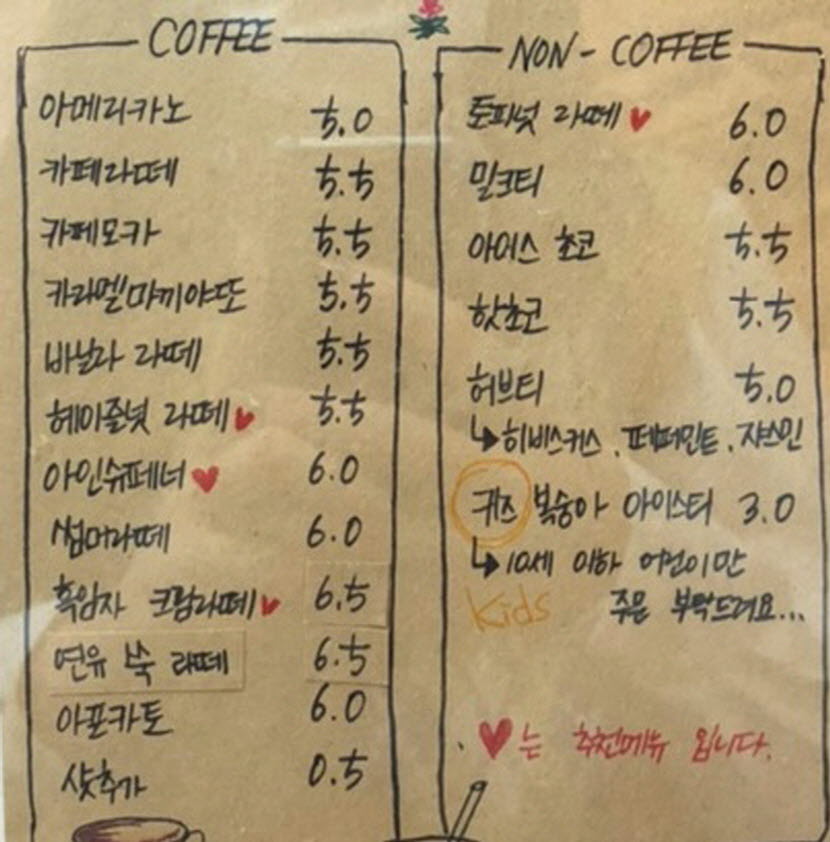 COFFEE
아메리카노 5.0
카페라떼 5.5
카페모카 5.5
카라멜마끼야또 5.5
바닐라 라떼 5.5
헤이즐넛 라떼♥ 5.5
아인슈페너♥ 6.0
썸머라떼 6.0
흑임자 크림라떼♥ 6.5
연유 쑥 라떼 6.5
아포카토 6.0
샷추가 0.5
NON-COFFEE
토피넛 라떼♥ 6.0
밀크티 6.0
아이스 초코 5.5
핫초코 5.5
허브티 5.0
↳히비스커스, 페퍼민트, 쟈스민
키즈 복숭아 아이스티 3.0
↳10세 이하 어린이만
Kids 주문 부탁드려요...
♥는 추천메뉴 입니다.